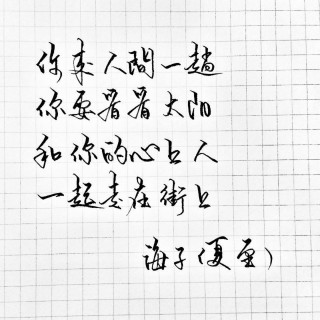 你来人間一趟
你要看看太阳
和你的心上人
一起走在街上
海子(夏至)